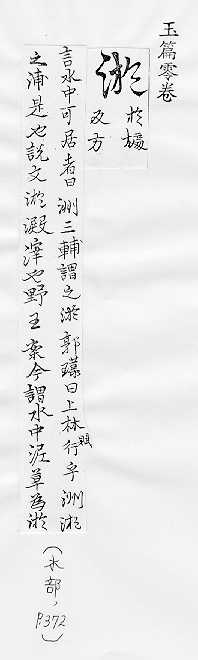 玉篇零卷
淤
於據
反方
言水中可居者曰洲三輔謂之淤郭璞曰上林賦行乎洲淤
之浦是也說文淤澱滓也野王案今謂水中泥草爲淤
(水部，P.372)